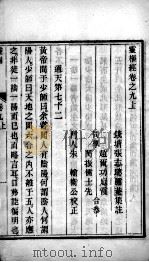 靈樞經卷之九上
錢塘張志聰隱菴集註
同學
合參
門人朱　輪衛公校正
通天第七十二
黃帝問于少師曰余嘗聞人有陰陽何謂陰人何謂
陽人少師曰天地之間六合之內不離于五人亦應
之非徒一陰一陽而已也而略言耳口弗能徧明也